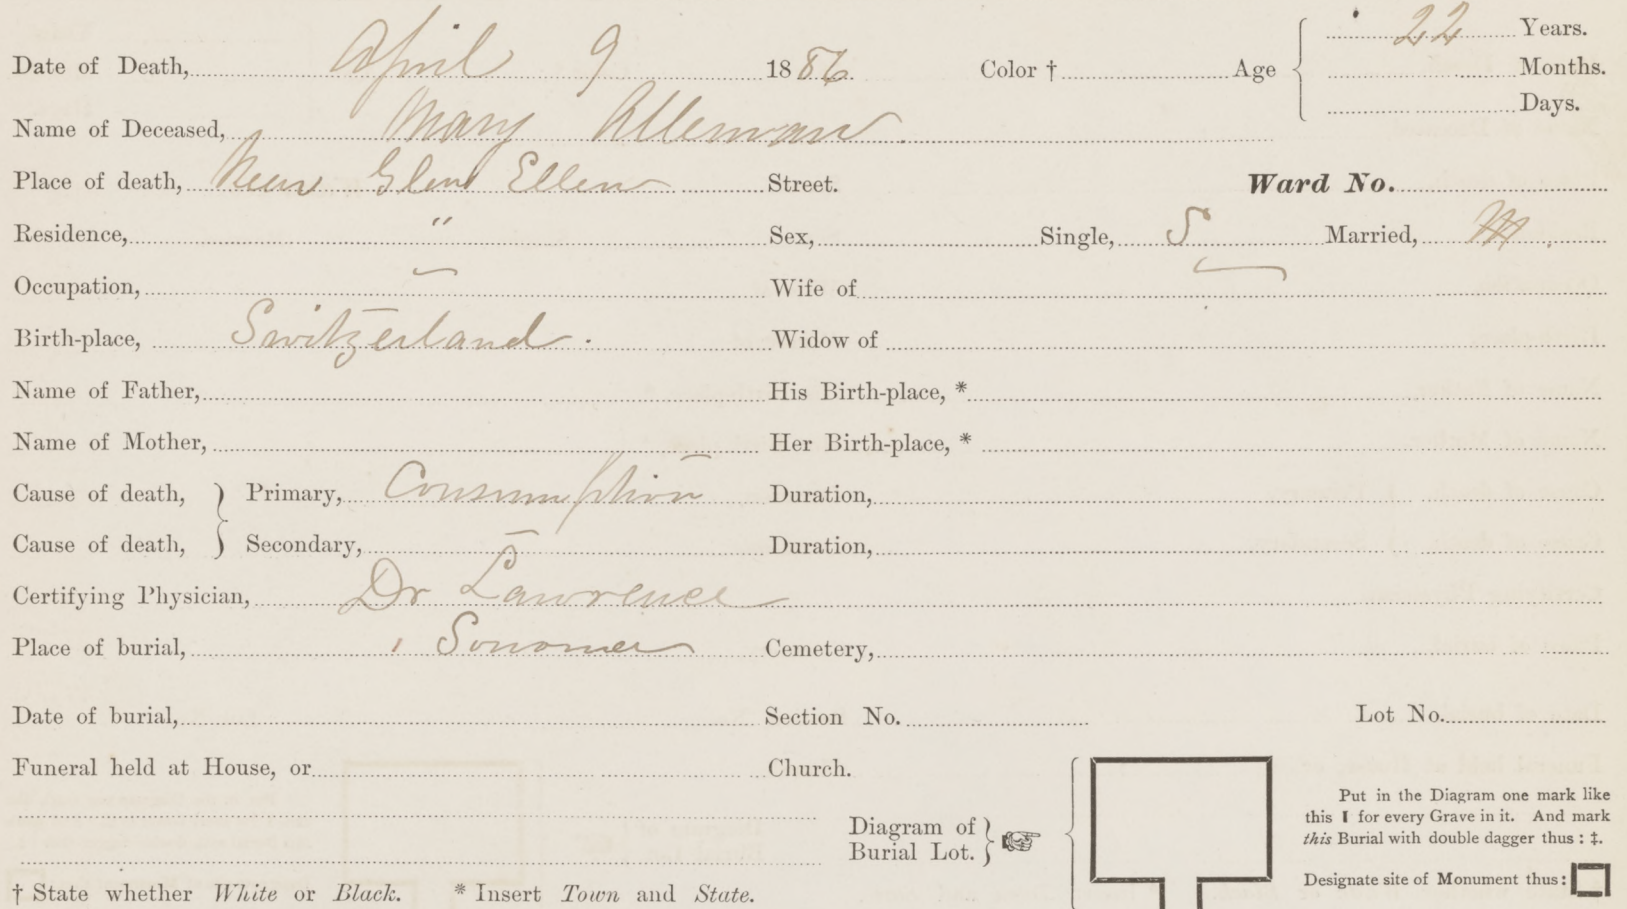 Date of Death, April 9 1886 Color † Age 22 Years.
Months.
Days.
Name of Deceased, Mary Alleman
Place of death, Near Glen Ellen Street. Ward No.
Residence, " Sex, Single, S Married, M
Occupation, — Wife of
Birth-place, Switzerland. Widow of
Name of Father, His Birth-place, *
Name of Mother, Her Birth-place, *
Cause of death, } Primary, Consumption Duration,
Cause of death, } Secondary, — Duration,
Certifying Physician, Dr Lawrence
Place of burial, Sonoma Cemetery,
Date of burial, Section No. Lot No.
Funeral held at House, or Church.
Diagram of
Burial Lot. }
Put in the Diagram one mark like
this I for every Grave in it. And mark
this Burial with double dagger thus : ‡.
Designate site of Monument thus :
† State whether White or Black. * Insert Town and State.